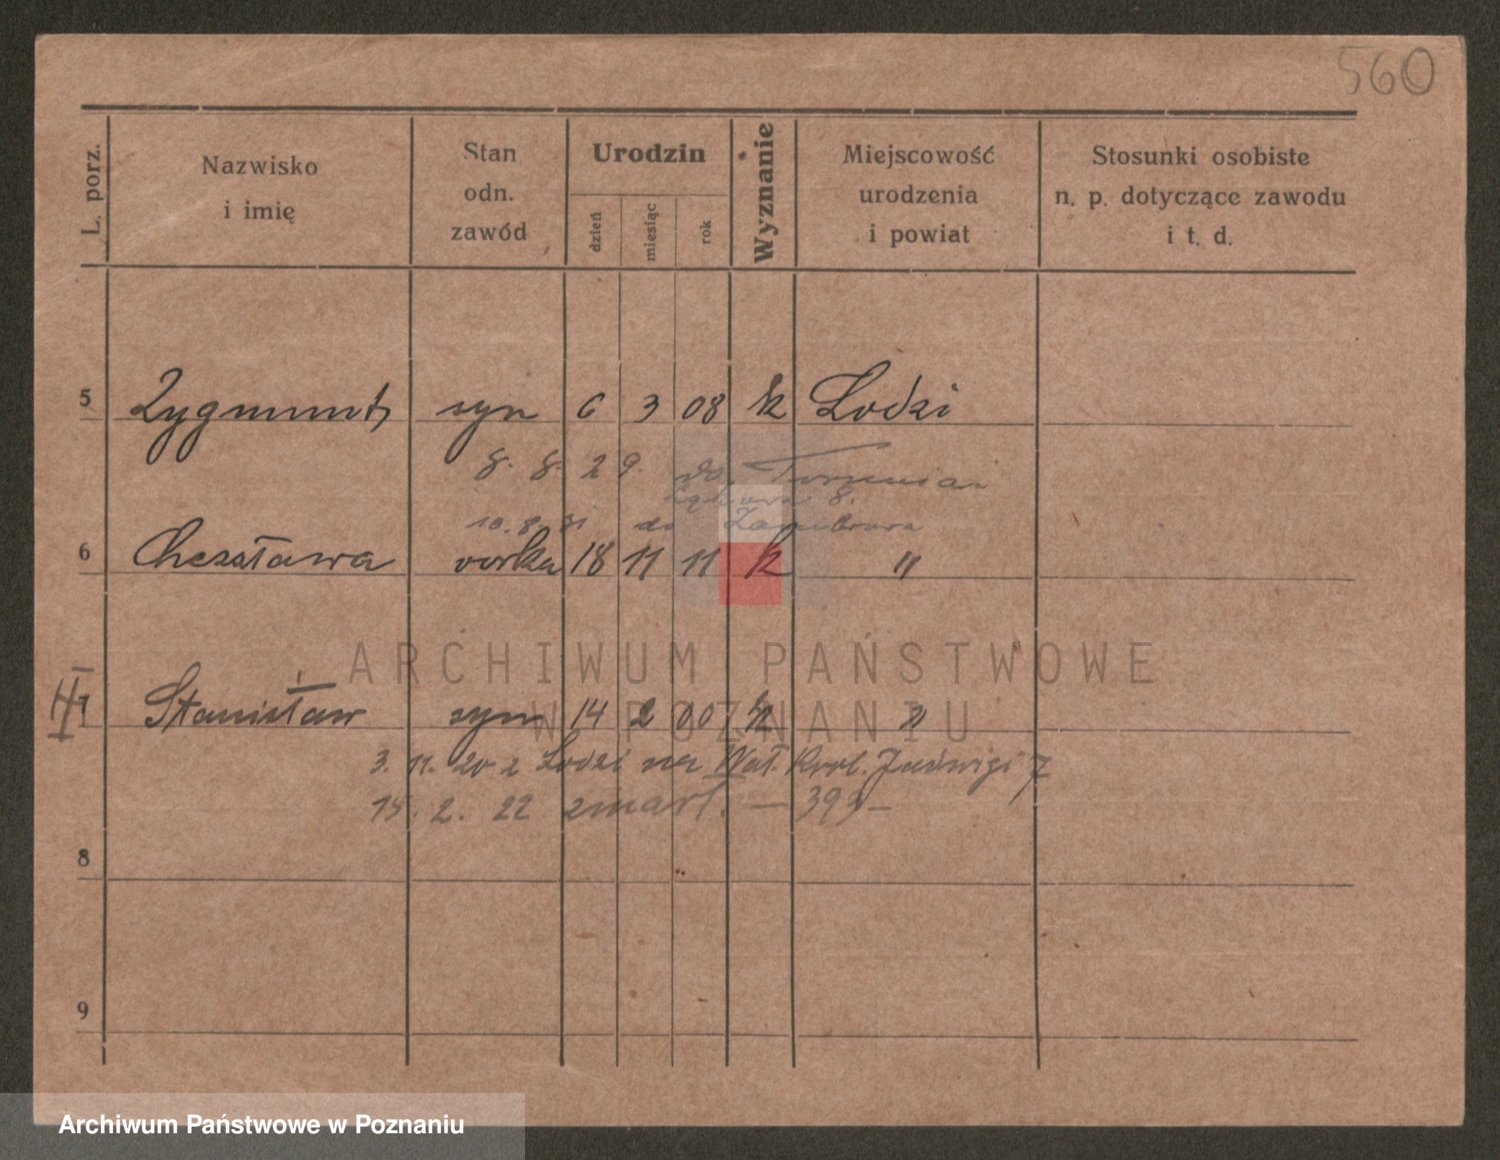 560
L. porz.
Nazwisko
i imię
Stan
odn.
zawód
Urodzin
dzień
miesiąc
rok
Wyznanie
Miejscowość
urodzenia
i powiat
Stosunki osobiste
n. p. dotyczące zawodu
i t. d.
5 Zygmunt syn 6 3 08 k Łodzi
8. 8. 29. do Torunia
8.
10. 8. 31 do
6 Czesława córka 18 11 11 k "
ARCHIWUM PAŃSTWOWE
W POZNANIU
7 Stanisław syn 14 2 00 k "
3. 11. 20 z Łodzi na Wał. Król. Jadwigi 7
15. 2. 22 zmarł. — 393 —
8
9
Archiwum Państwowe w Poznaniu